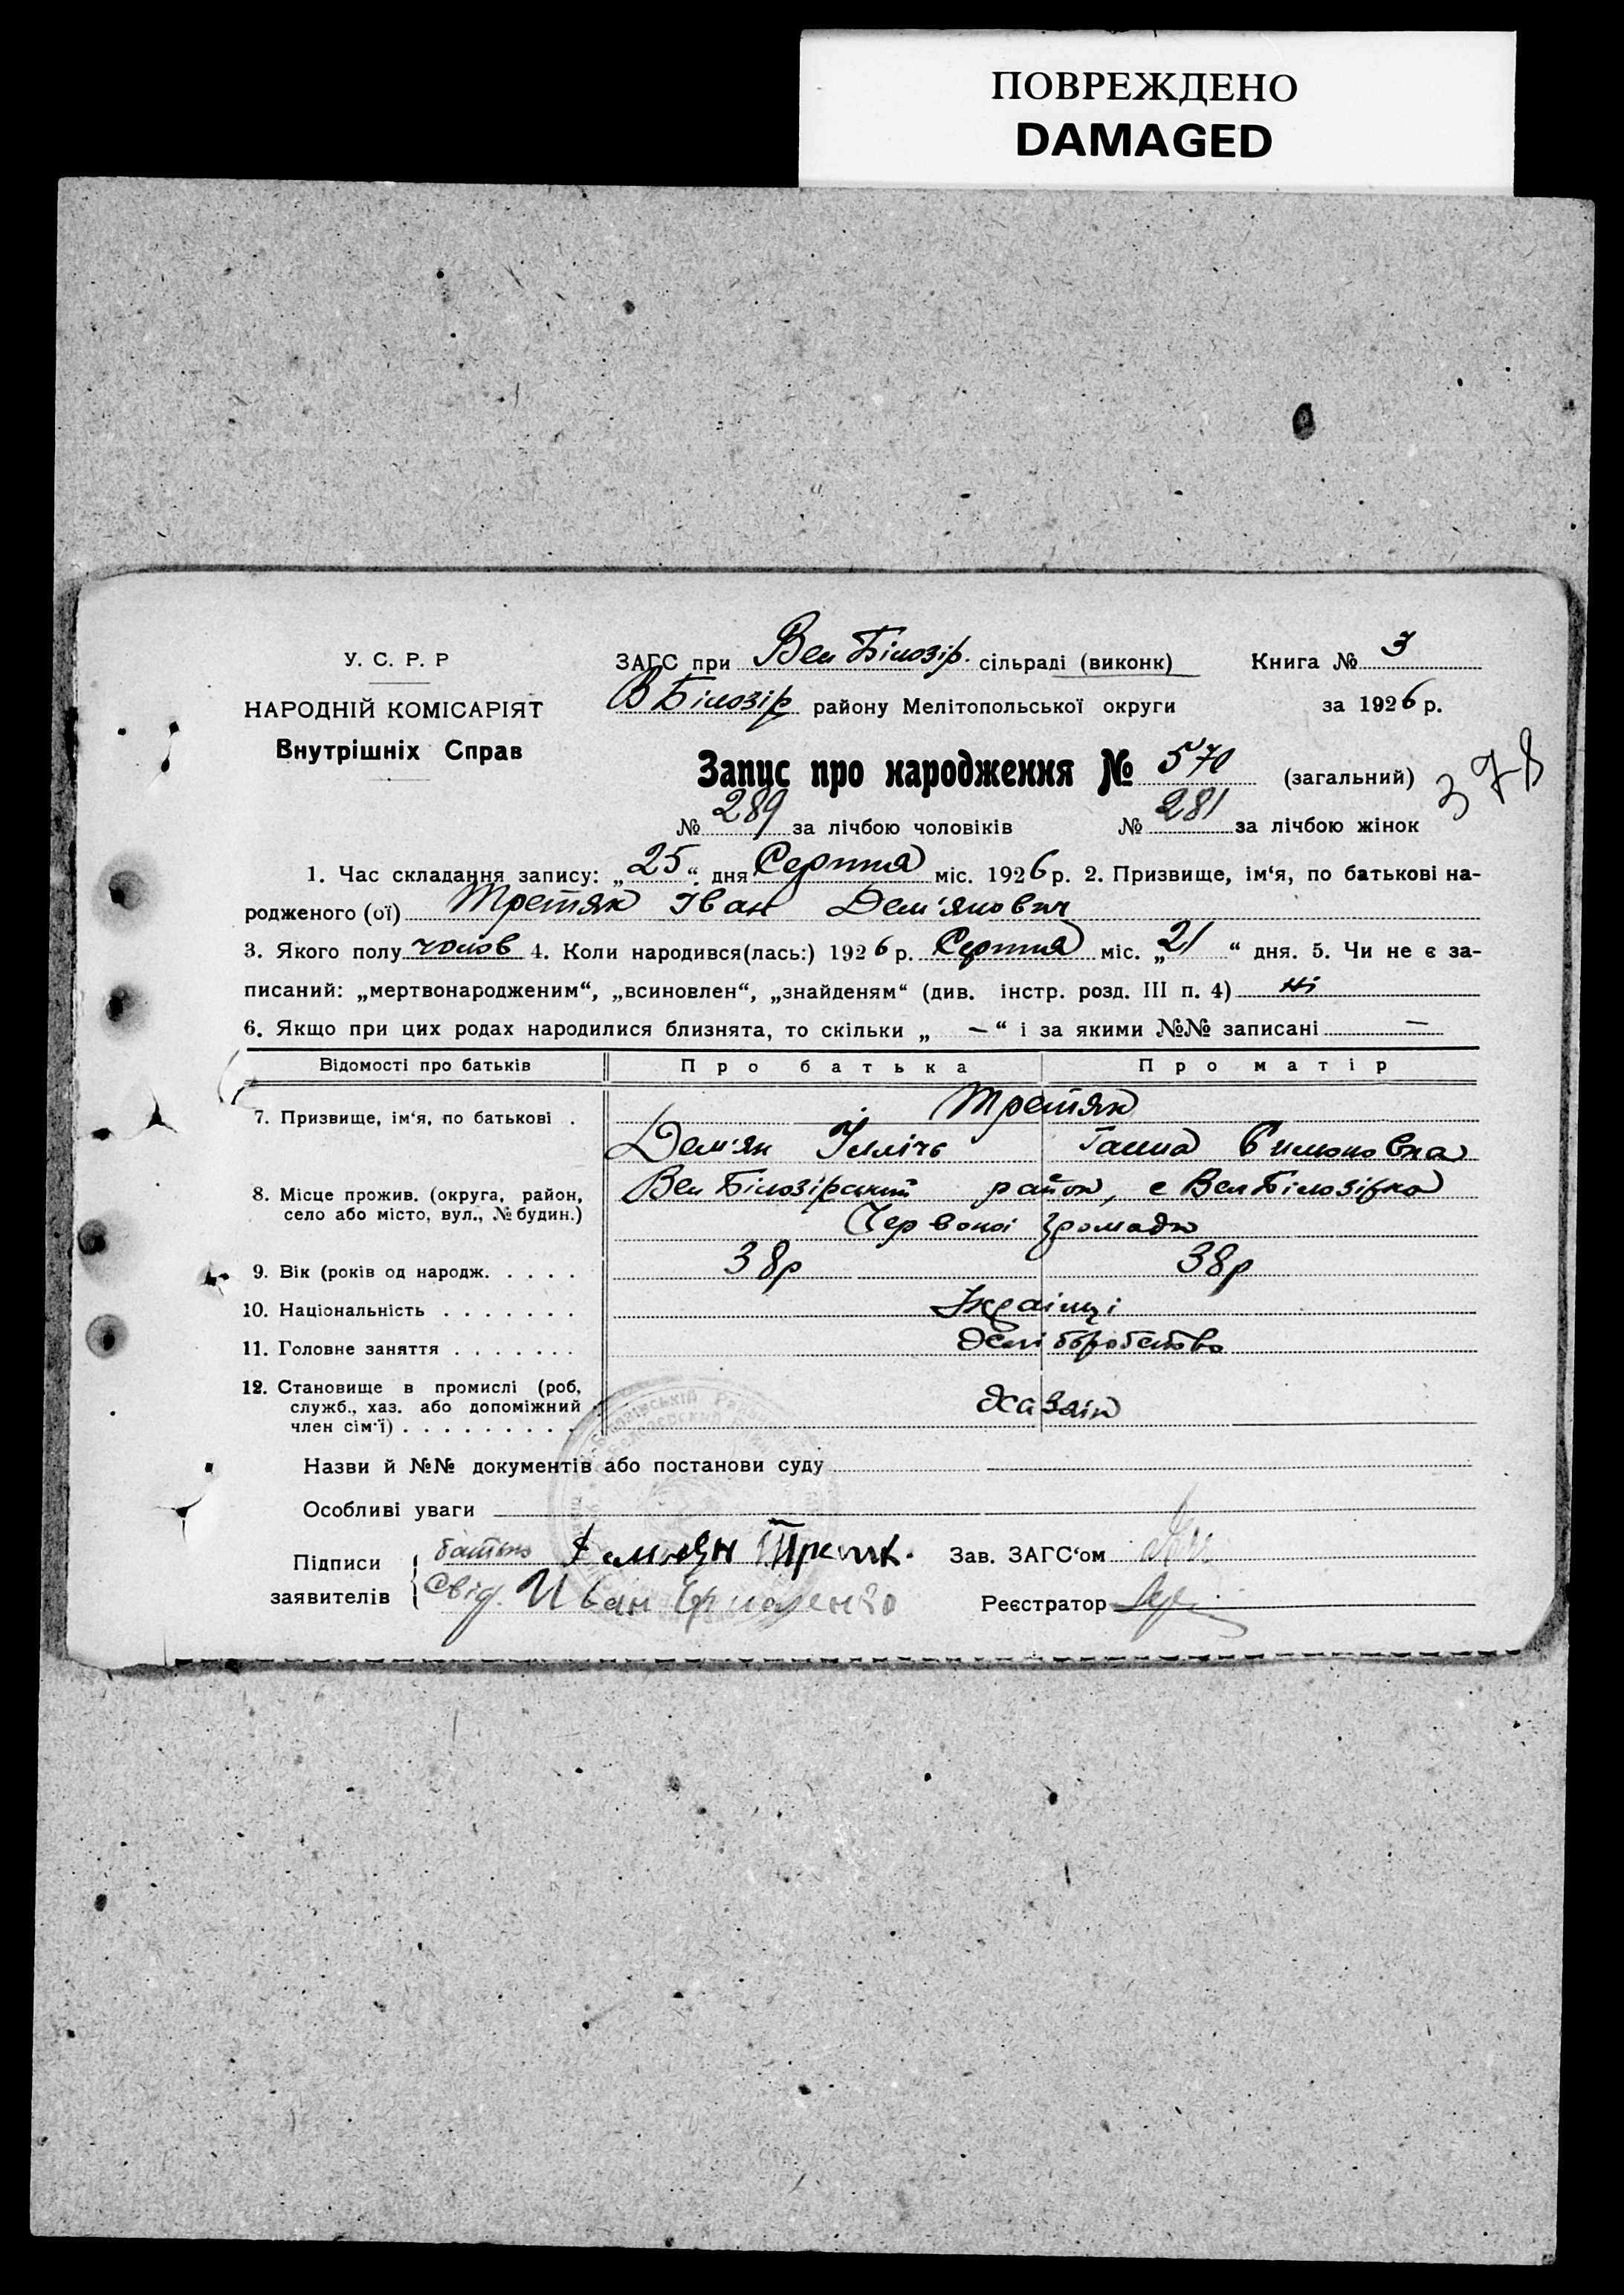 ПОВРЕЖДЕНО
DAMAGED
У. С. Р. Р
НАРОДНІЙ КОМІСАРІЯТ
Внутрішніх Справ
ЗАГС при Вел Білозір. сільраді (виконк)
Книга № 3
В Білозір району Мелітопольської округи
за 1926 р.
Запис про народження № 570 (загальний)
378
№ 289 за лічбою чоловіків № 281 за лічбою жінок
1. Час складання запису: „25“ дня Серпня міс. 1926 р. 2. Призвище, ім‘я, по батькові на-
родженого (ої) Третяк Іван Дем'янович
3. Якого полу чолов 4. Коли народився(лась:) 1926 р. Серпня міс. „21“ дня. 5. Чи не є за-
писаний: „мертвонародженим“, „всиновлен“, „знайденям“ (див. інстр. розд. III п. 4) Ні
6. Якщо при цих родах народилися близнята, то скільки „ — “ і за якими №№ записані —
Відомості про батьків Про батька Про матір
7. Призвище, ім‘я, по батькові . Третяк
Дем'ян Ілліч Ганна
8. Місце прожив. (округа, район, село або місто, вул., № будин.) Вел Білозірський район, с Вел Білозірка
Червоної громади
9. Вік (років од народж. . . . . 38р 38р
10. Національність . . . . . . . Українці
11. Головне заняття . . . . . . . Хліборобство
12. Становище в промислі (роб,
служб., хаз. або допоміжний
член сім‘ї) . . . . . . . . . Хазяін
Назви й №№ документів або постанови суду
Особливі уваги
Підписи
заявителів
батько Третяк.
Свід. Иван
Зав. ЗАГС‘ом
Реєстратор